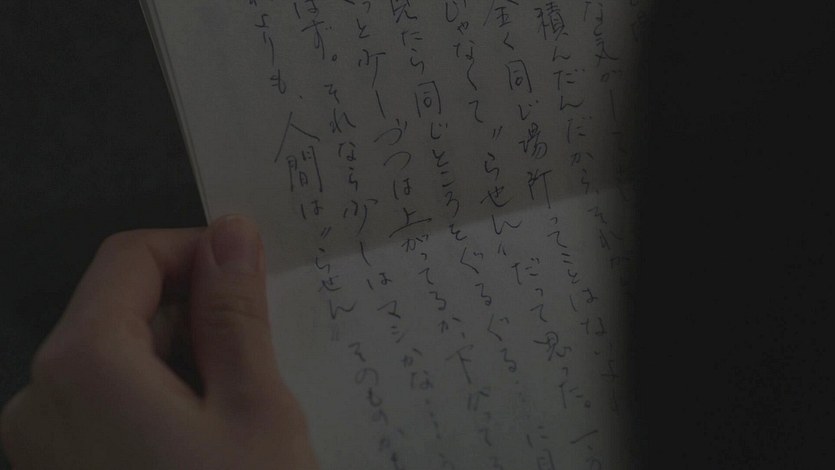 な気がし
積んだんだから、それ
全く同じ場所ってことはない
じゃなくて〃らせん〃だって思った。一
見たら同じところをぐるぐる……に見
っと少しづつは上がってるか、下がってる
はず。それなら少しはマシかな……
よりも、人間は〃らせん〃そのものか